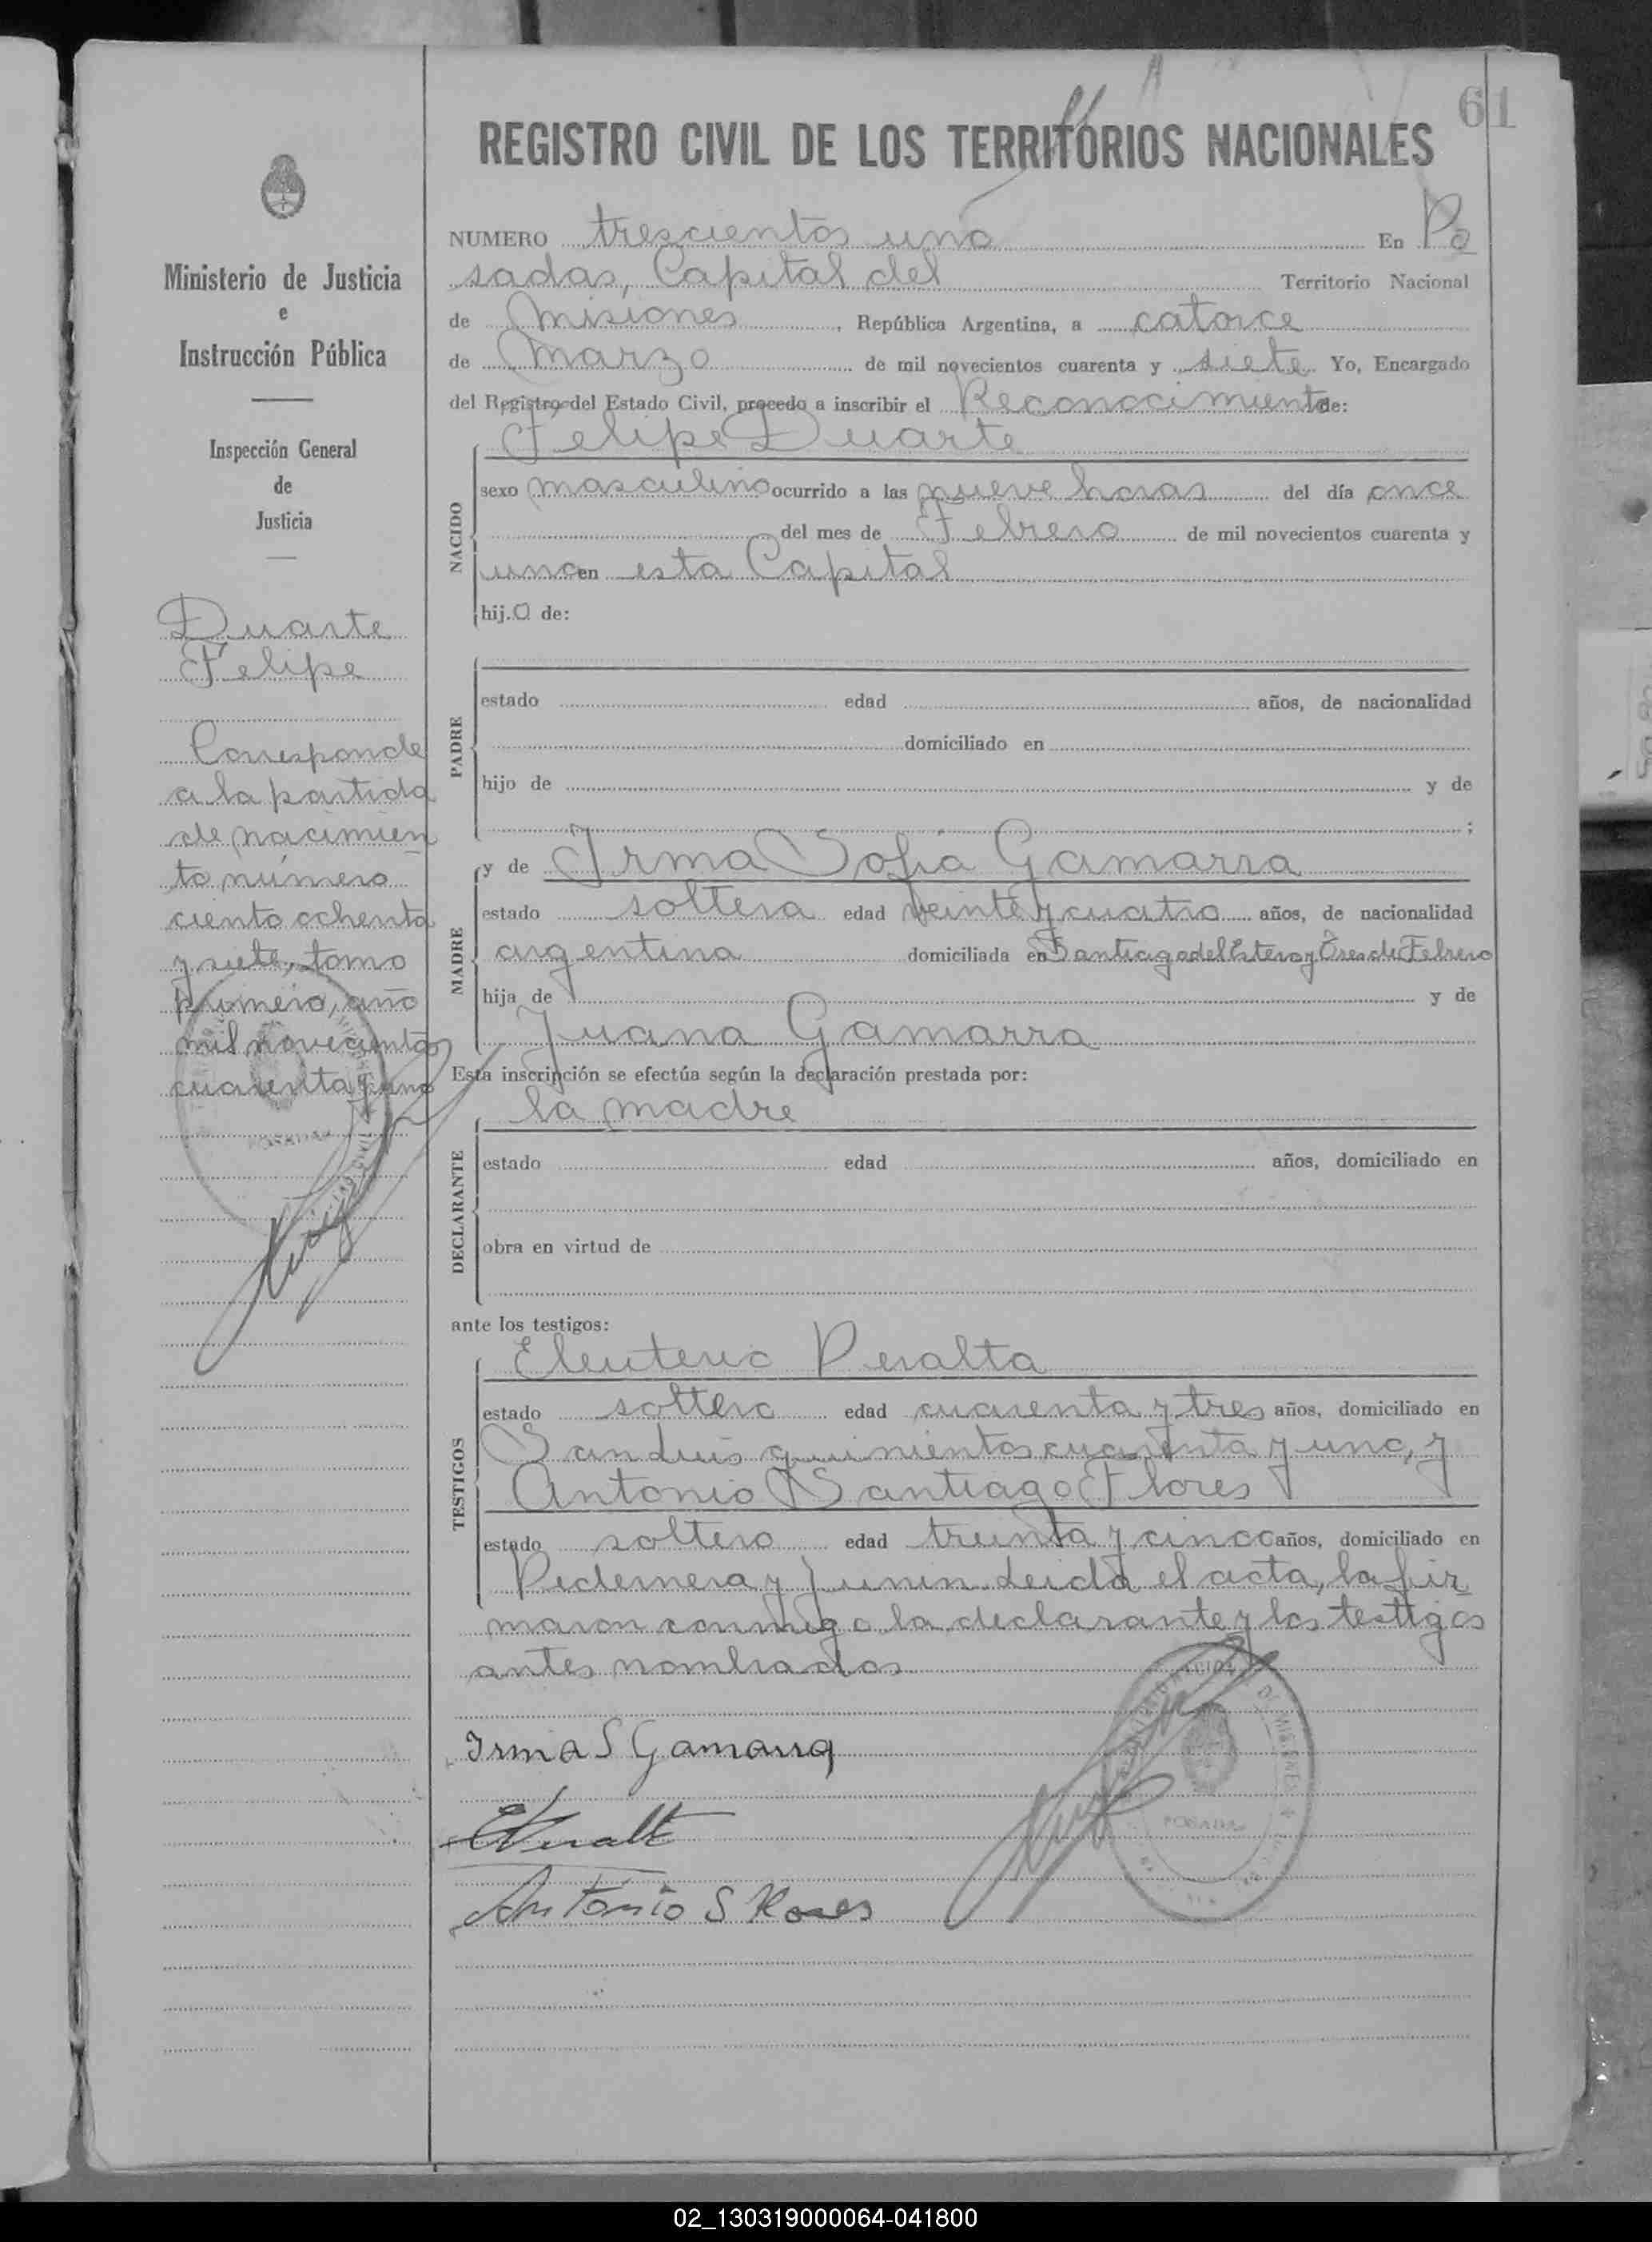 61
REGISTRO CIVIL DE LOS TERRITORIOS NACIONALES
NUMERO trescientos uno En Po
sadas, Capital del Territorio Nacional
de Misiones, República Argentina, a catorce
de Marzo de mil novecientos cuarenta y siete Yo, Encargado
del Registro del Estado Civil, procedo a inscribir el Reconocimiento de:
Felipe Duarte
NACIDO
sexo masculino ocurrido a las nueve horas del día once
del mes de Febrero de mil novecientos cuarenta y
uno en esta Capital
hij.o de:
PADRE
estado edad años, de nacionalidad
domiciliado en
hijo de y de
;
MADRE
y de Irma Sofia Gamarra
estado soltera edad veinte y cuatro años, de nacionalidad
argentina domiciliada en Santiago del Estero y Tres de Febrero
hija de y de
Juana Gamarra
Esta inscripción se efectúa según la declaración prestada por:
la madre
DECLARANTE
estado edad años, domiciliado en
obra en virtud de
ante los testigos:
TESTIGOS
Eleuterio Peralta
estado soltero edad cuarenta y tres años, domiciliado en
San Luis quinientos cuarenta y uno, y
Antonio Santiago Flores
estado soltero edad treinta y cinco años, domiciliado en
Pedernera y Junin. Leida el acta, la fir
maron conmigo la declarante y los testigos
antes nombrados
Irma S Gamarra
EPeralt
Antonio S Flores
DE MISIONES
POSADAS
Ministerio de Justicia
e
Instrucción Pública
Inspección General
de
Justicia
Duarte
Felipe
Corresponde
a la partida
de nacimien
to número
ciento ochenta
y siete, tomo
primero, año
mil novecientos
cuarenta y uno
POSADAS
02_130319000064-041800